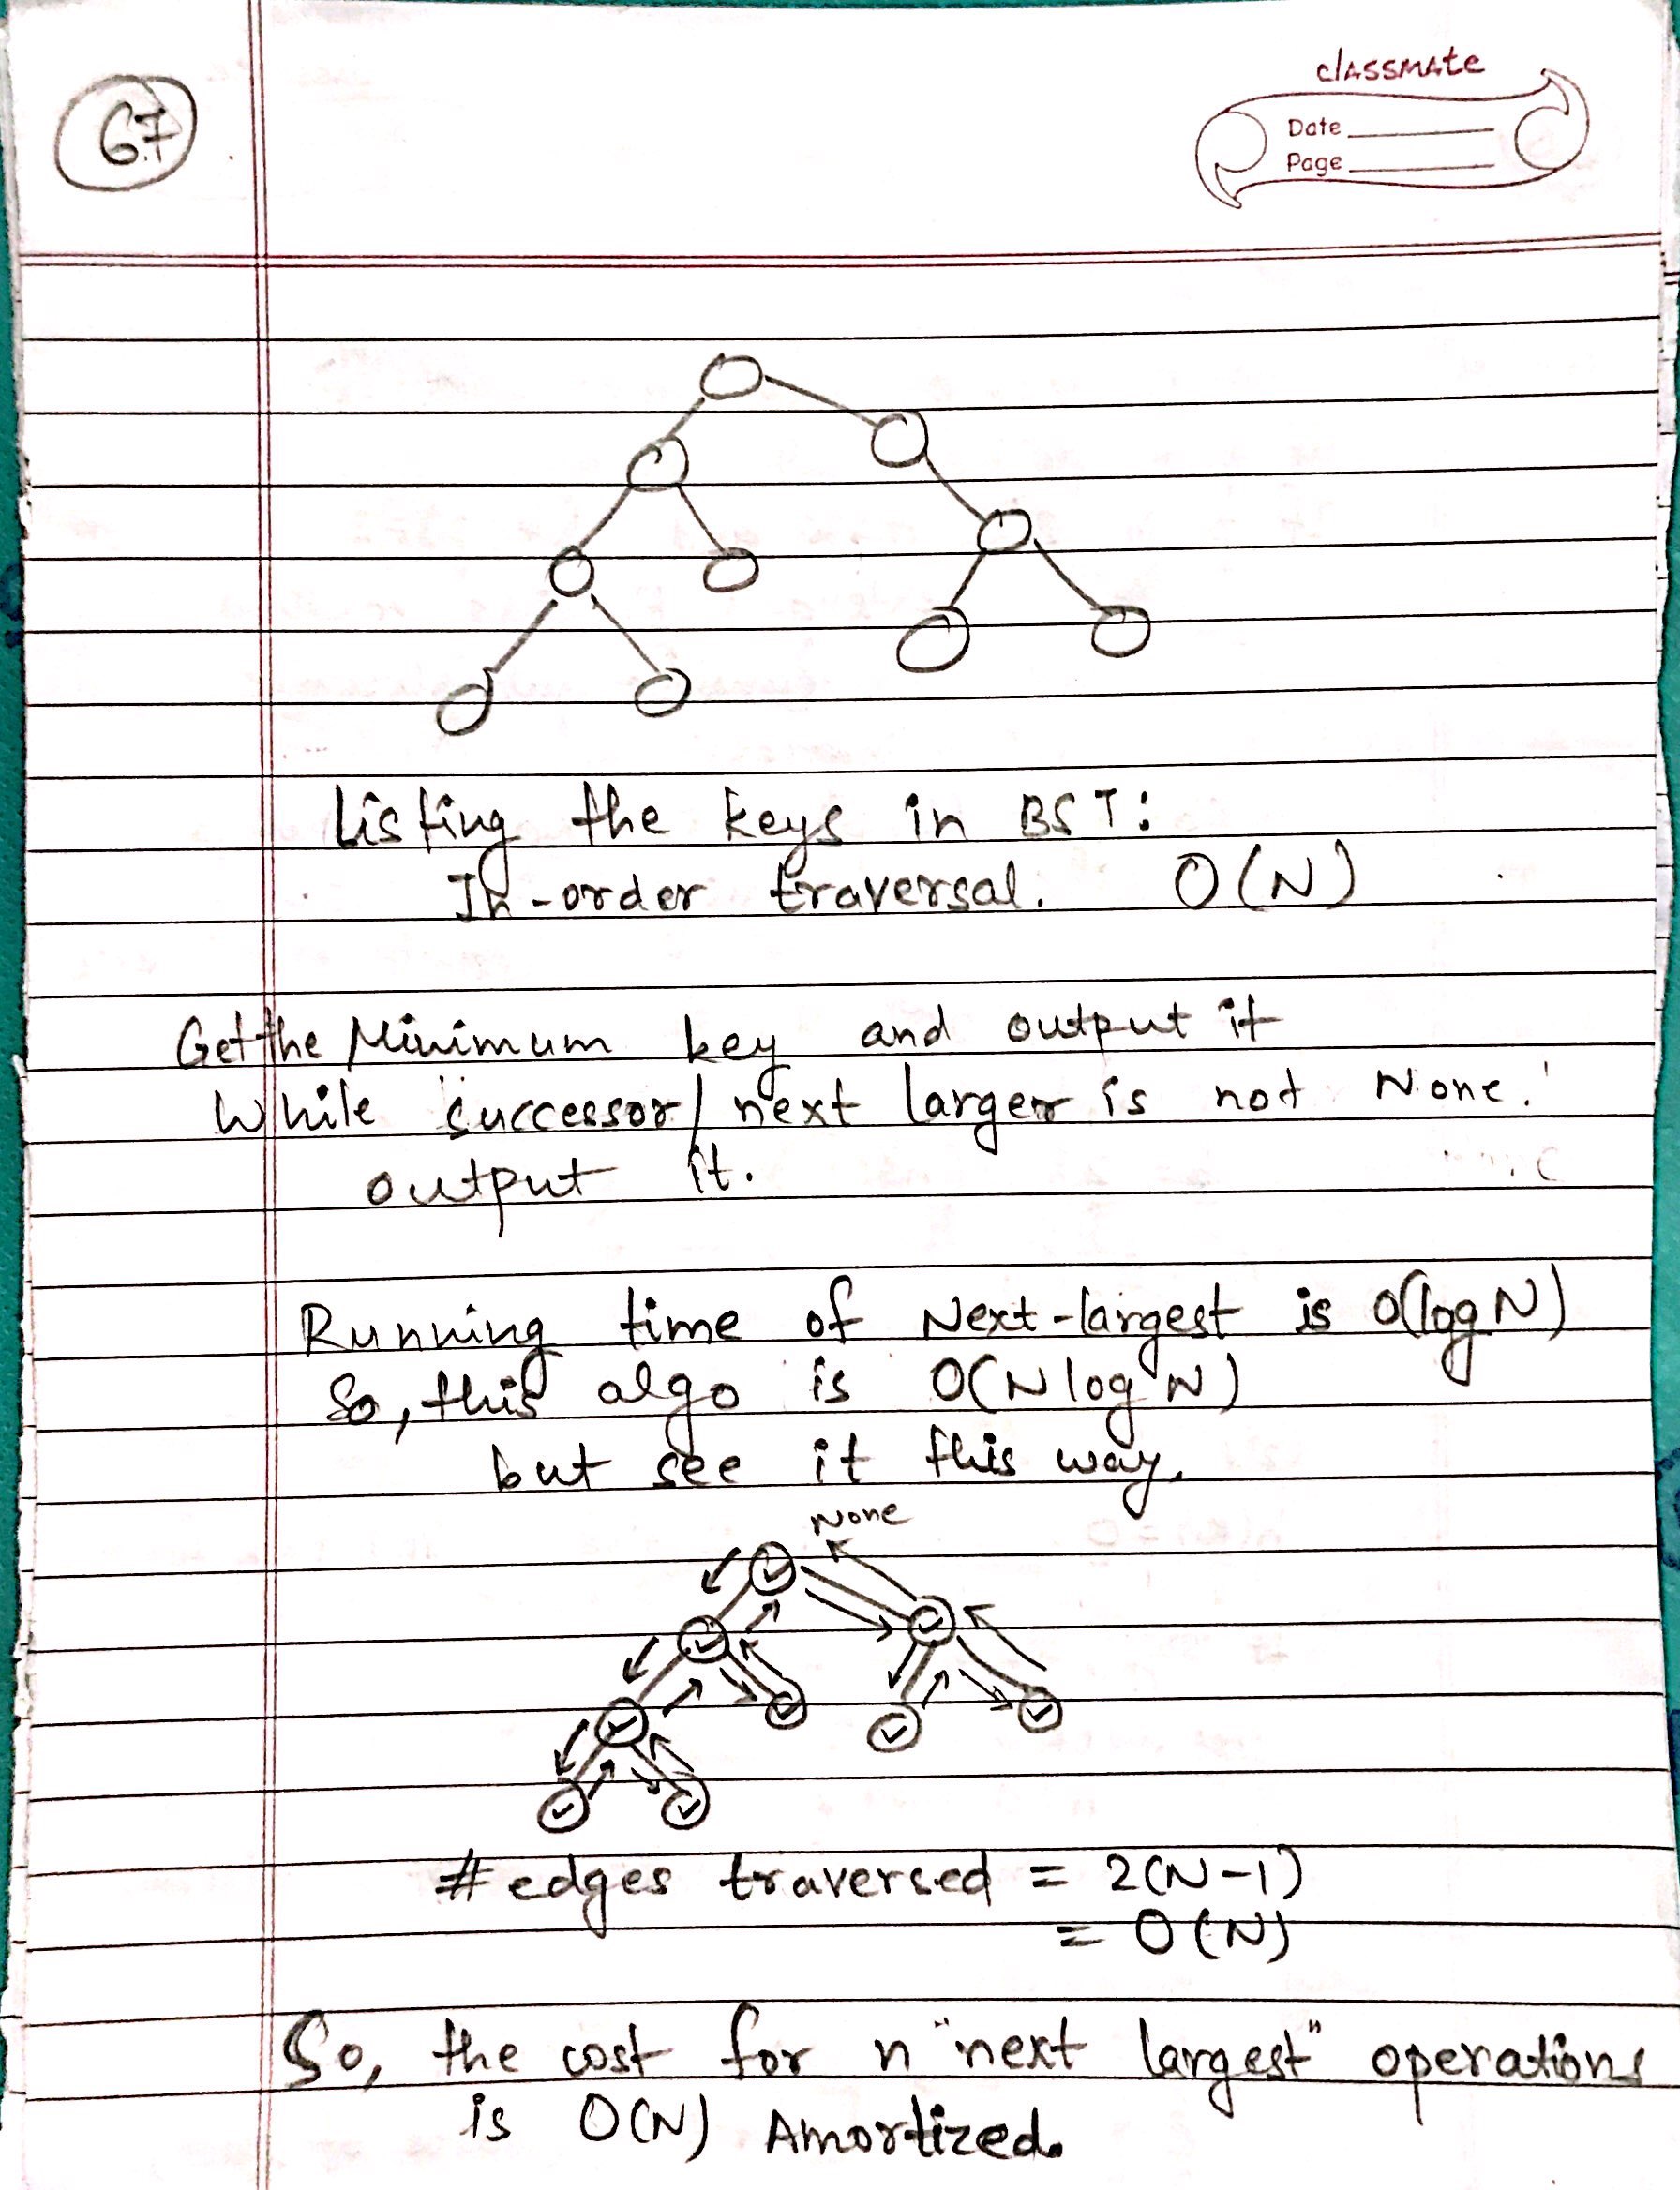 67
classmate
Date
Page
Listing the keys in BST:
In-order traversal. O(N)
Get the Minimum key and output it
While successor/next larger is not None:
output it.
Running time of Next-largest is O(log N)
So, this algo is O(N log N)
but see it this way,
None
# edges traversed = 2(N-1)
= O(N)
So, the cost for n "next largest" operations
is O(N) Amortized.